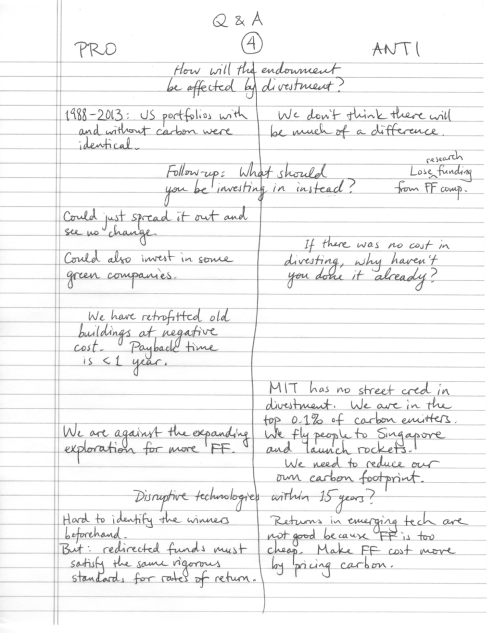 Q & A
PRO
4
ANTI
How will the endowment
be affected by divestment?
1988-2013: US portfolios with
and without carbon were
identical.
We don't think there will
be much of a difference.
Follow-up: What should
you be investing in instead?
research
Lose funding
from FF comp.
Could just spread it out and
see no change.
Could also invest in some
green companies.
If there was no cost in
divesting, why haven't
you done it already?
We have retrofitted old
buildings at negative
cost. Payback time
is < 1 year.
MIT has no street cred in
divestment. We are in the
top 0.1% of carbon emitters.
We fly people to Singapore
and launch rockets.
We need to reduce our
own carbon footprint.
We are against the expanding
exploration for more FF.
Disruptive technologies within 15 years?
Hard to identify the winners
beforehand.
But: redirected funds must
satisfy the same rigorous
standards for rates of return.
Returns in emerging tech are
not good because FF is too
cheap. Make FF cost more
by pricing carbon.